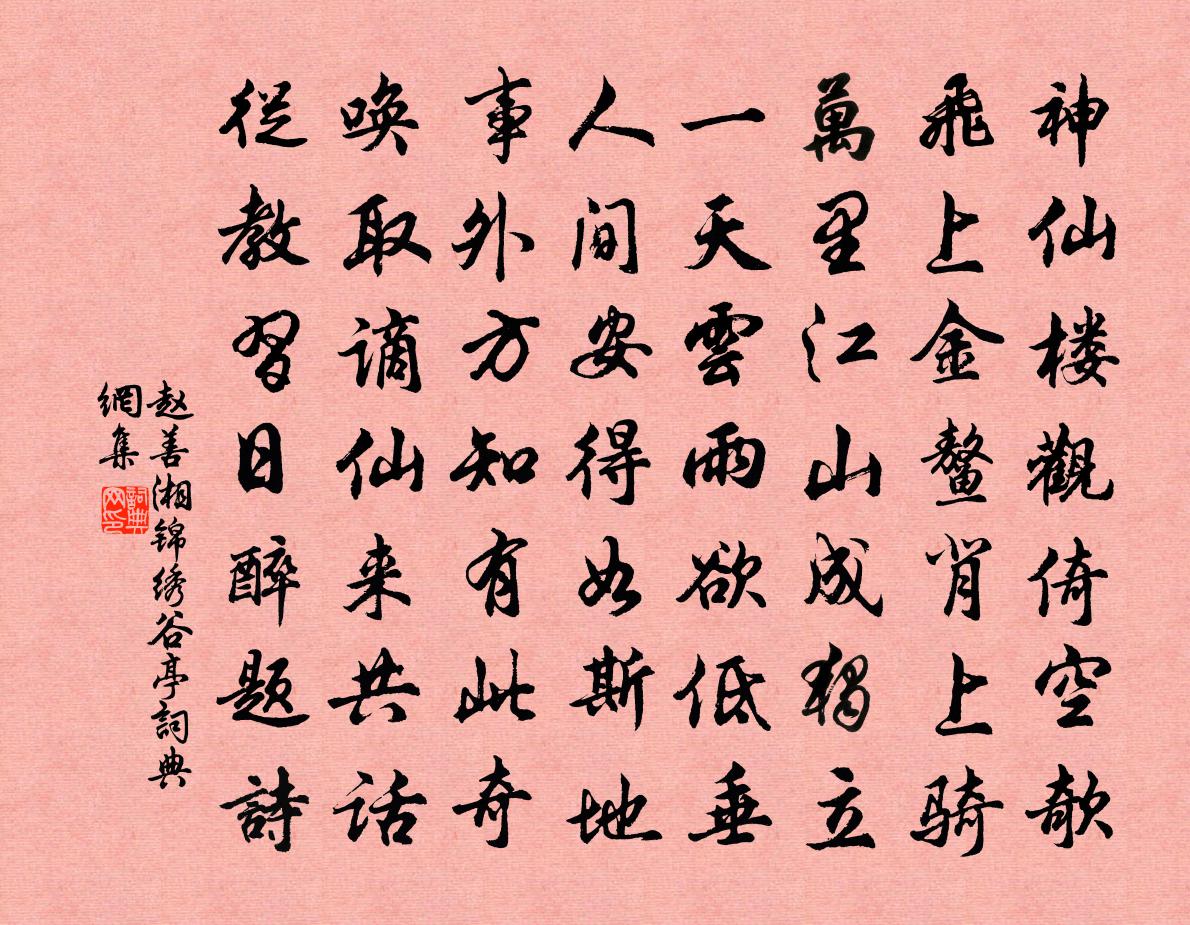 神仙楼觀倚空欹
飛上金鳌背上骑
萬里江山成獨立
一天雲雨欲低垂
人间安得如斯地
事外方知有此奇
唤取谪仙来共话
從教習日醉题詩
赵善湘锦绣谷亭詞典
網集
詞典
网印